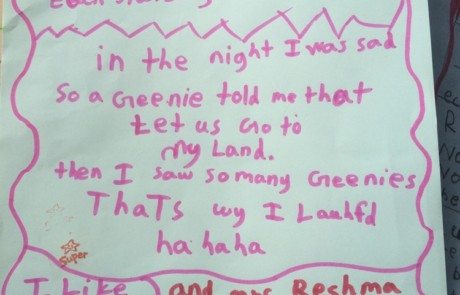 in the night I was sad
So a Geenie told me that
Let us Go to
my Land.
then I saw so many Geenies
ThaTs wy I Lauhfd
ha ha ha
Super
I Like
and mrs Reshma